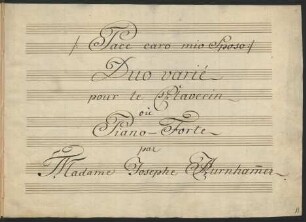 / Pace caro mio Sposo /
Duo varié
pour le Clavecin
où
Piano-Forte
par
Madame Josephe Aurnham̄er